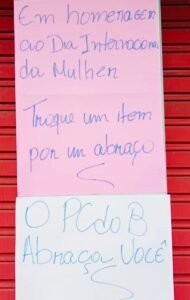 Em homenagem
ao Dia Internacional
da Mulher
Troque um item
por um abraço
O PCdoB
Abraça Você